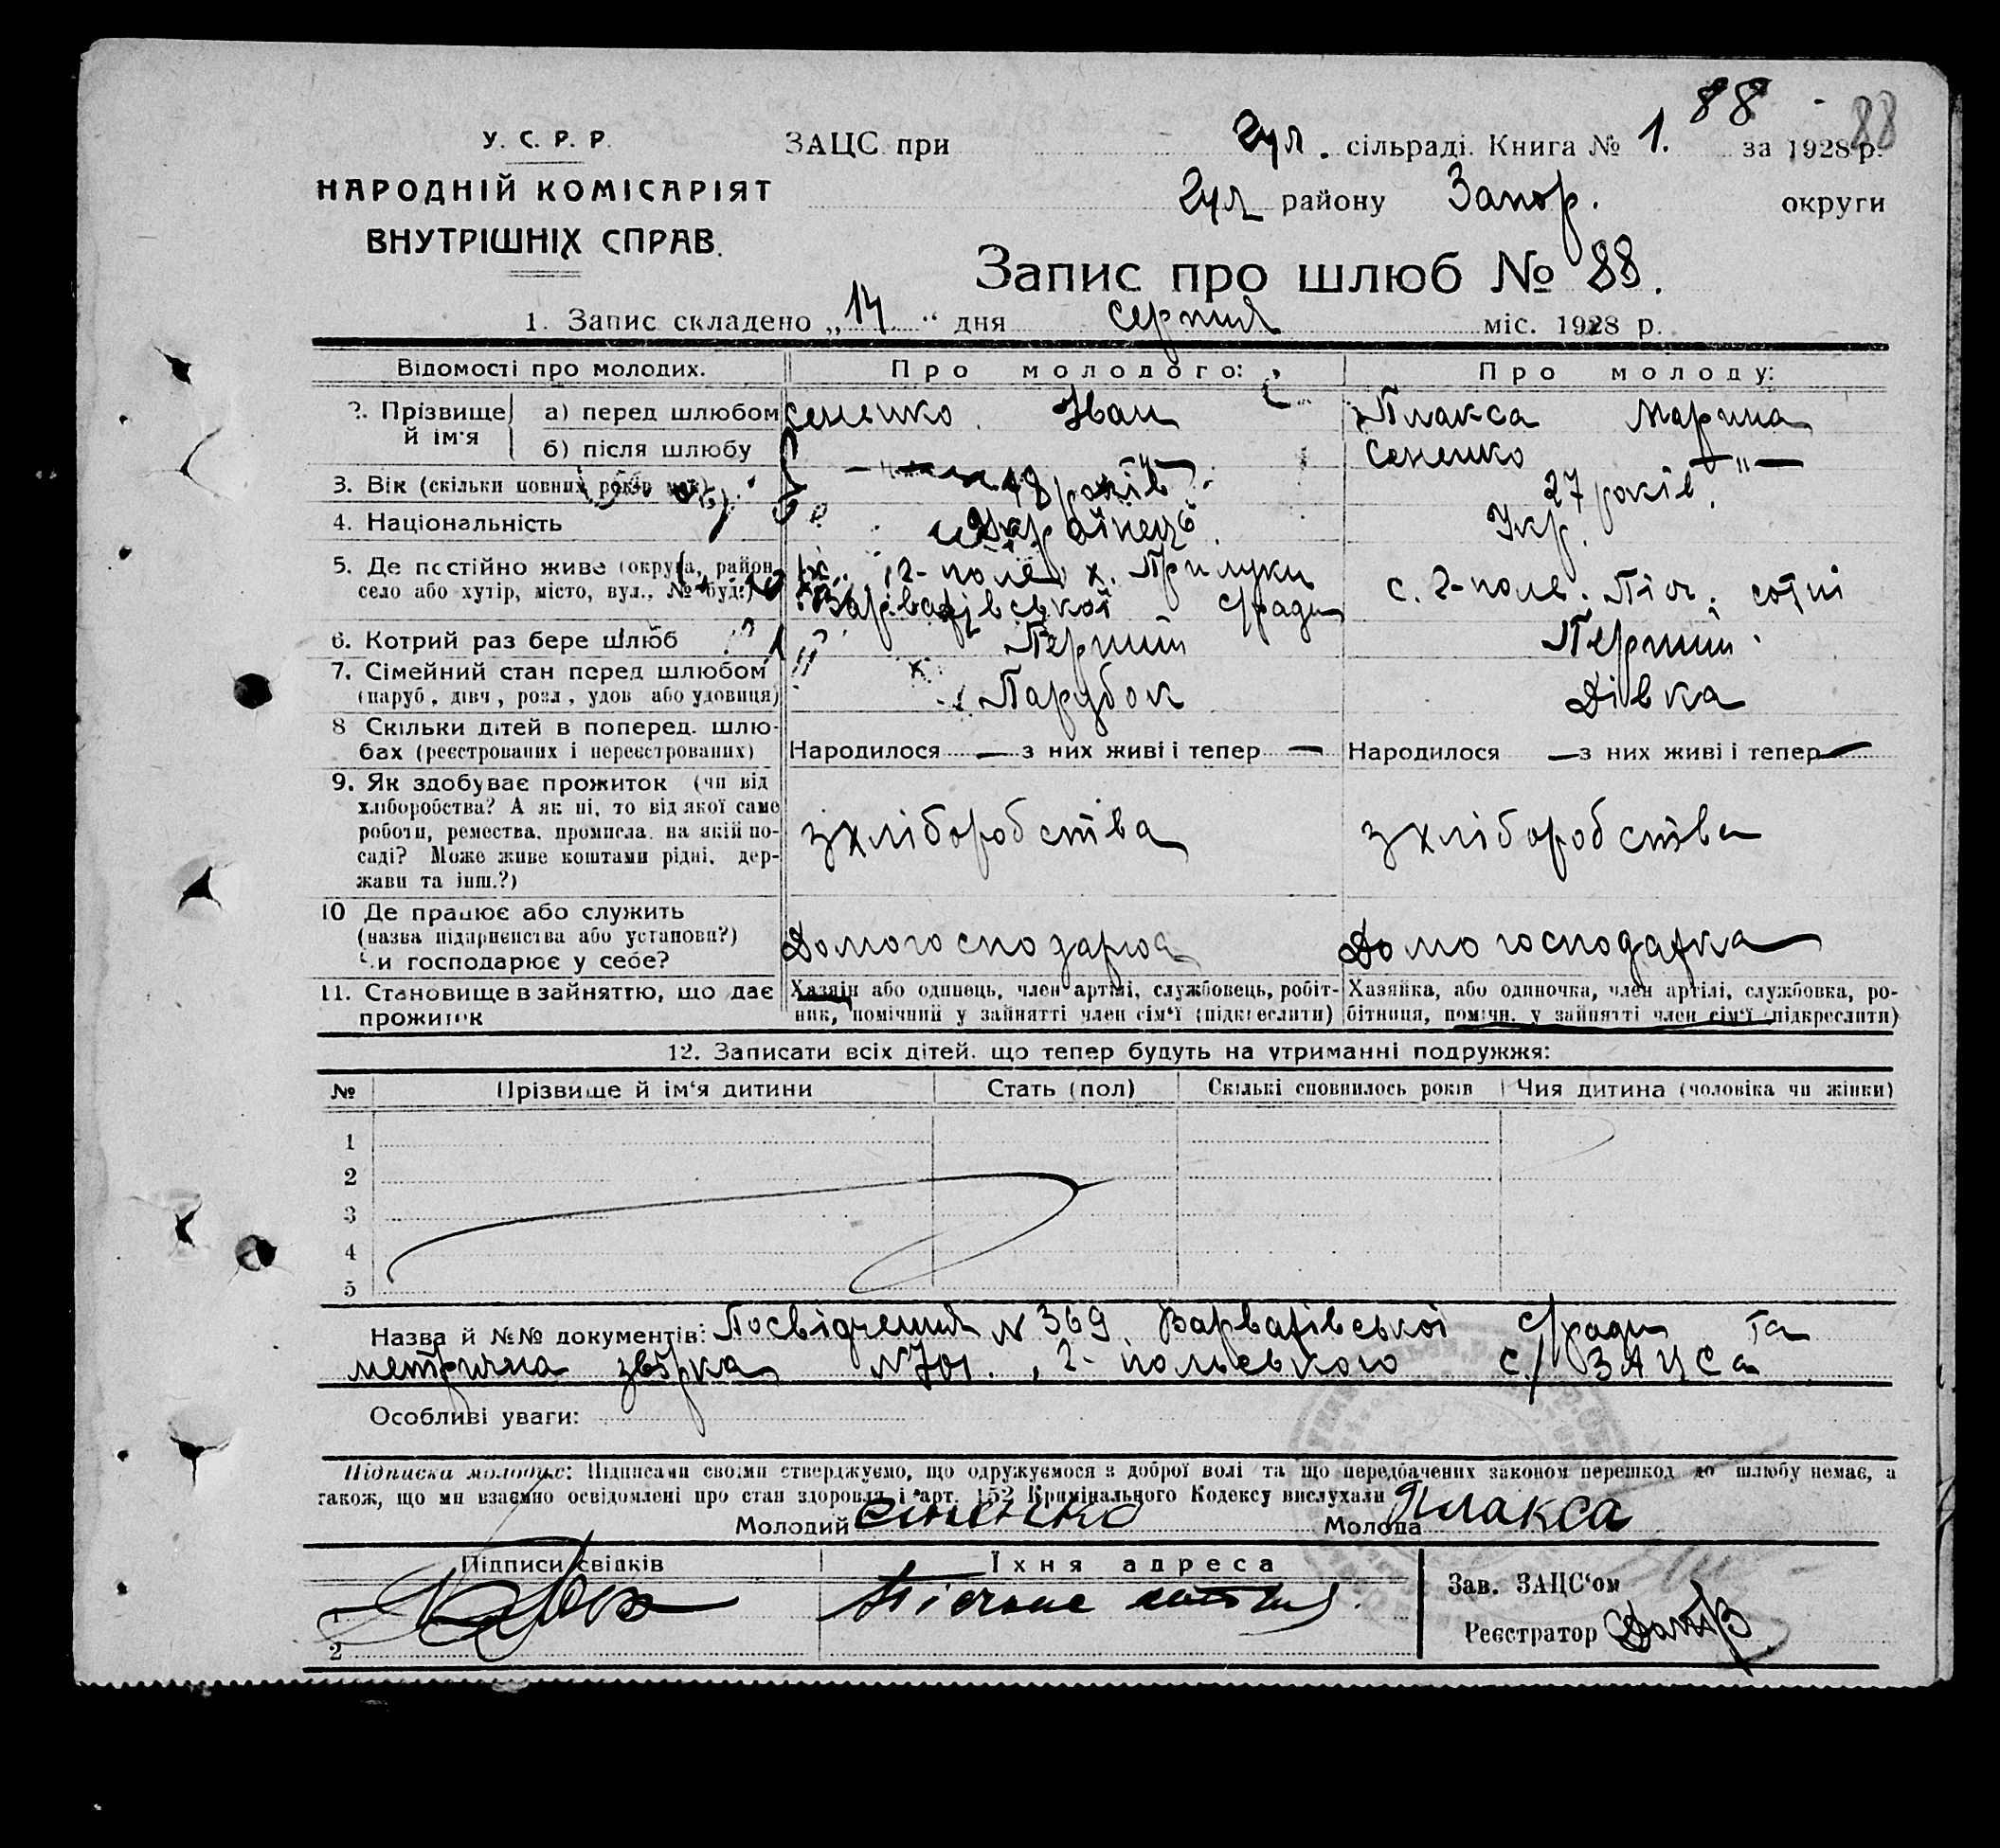 88 88
У. С. Р. Р.
НАРОДНІЙ КОМІСАРІЯТ
ВНУТРІШНІХ СПРАВ.
ЗАЦС при Гул. сільраді. Книга № 1. за 1928 р.
Гул району Запор. округи
Запис про шлюб № 88.
1. Запис складено „14“ дня серпня міс. 1928 р.
Відомості про молодих. Про молодого: Про молоду:
2. Прізвище й ім'я а) перед шлюбом Сененко Іван Плакса Марина
б) після шлюбу — " — Сененко — " —
3. Вік (скільки повних років має) 18 років 27 років.
4. Національність Українець Укр.
5. Де постійно живе (округа, район, Г-поле х. Прилуки с. Г-поле. Піс. сотні
село або хутір, місто, вул., № буд.) Варварівської с/ради
6. Котрий раз бере шлюб Перший Перший
7. Сімейний стан перед шлюбом
(паруб., дівч., розл., удов. або удовиця) Парубок Дівка
8 Скільки дітей в поперед. шлю-
бах (реєстрованих і нереєстрованих) Народилося — з них живі і тепер — Народилося — з них живі і тепер —
9. Як здобуває прожиток (чи від
хліборобства? А як ні, то від якої саме
роботи, ремества, промисла, на якій по- з хліборобства з хліборобства
саді? Може живе коштами рідні, дер-
жави та інш.?)
10 Де працює або служить
(назва підприємства або установи?) Домогосподарює Домогосподарка
Чи господарює у себе?
11. Становище в зайняттю, що дає Хазяїн або одинець, член артілі, службовець, робіт- Хазяйка, або одиночка, член артілі, службовка, ро-
прожиток ник, помічний у зайнятті член сім'ї (підкреслити) бітниця, помічн. у зайнятті член сім'ї (підкреслити)
12. Записати всіх дітей, що тепер будуть на утриманні подружжя:
№ Прізвище й ім'я дитини Стать (пол) Скількі сповнилось років Чия дитина (чоловіка чи жінки)
1
2
3
4
5
Назва й №№ документів: Посвідчення N 369 Варварівської с/ради та
метрична звірка N 701. Г-польського с/ ЗАЦСа
Особливі уваги:
Підписка молодих: Підписами своїми стверджуємо, що одружуємося з доброї волі та що передбачених законом перешкод до шлюбу немає, а
також, що ми взаємно освідомлені про стан здоровля і арт. 152 Кримінального Кодексу вислухали
Молодий Сененко Молода Плакса
Підписи свідків Їхня адреса Зав. ЗАЦС'ом
1 Пісчане
2 Реєстратор